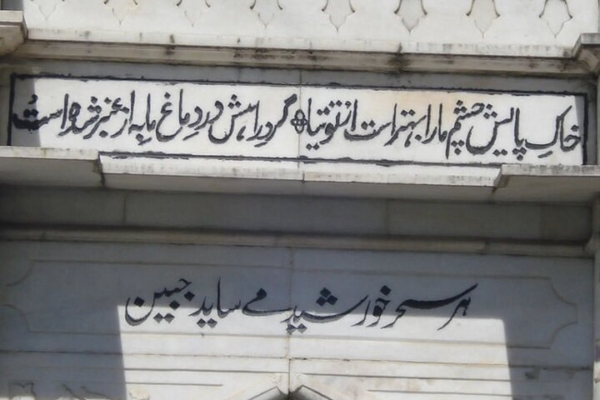 خاکِ پایش چشم مارا بہتر است از توتیا گردِ راہش در دماغِ ما بہ از عنبر شدہ است
ہر سحر خورشید مے ساید جبین